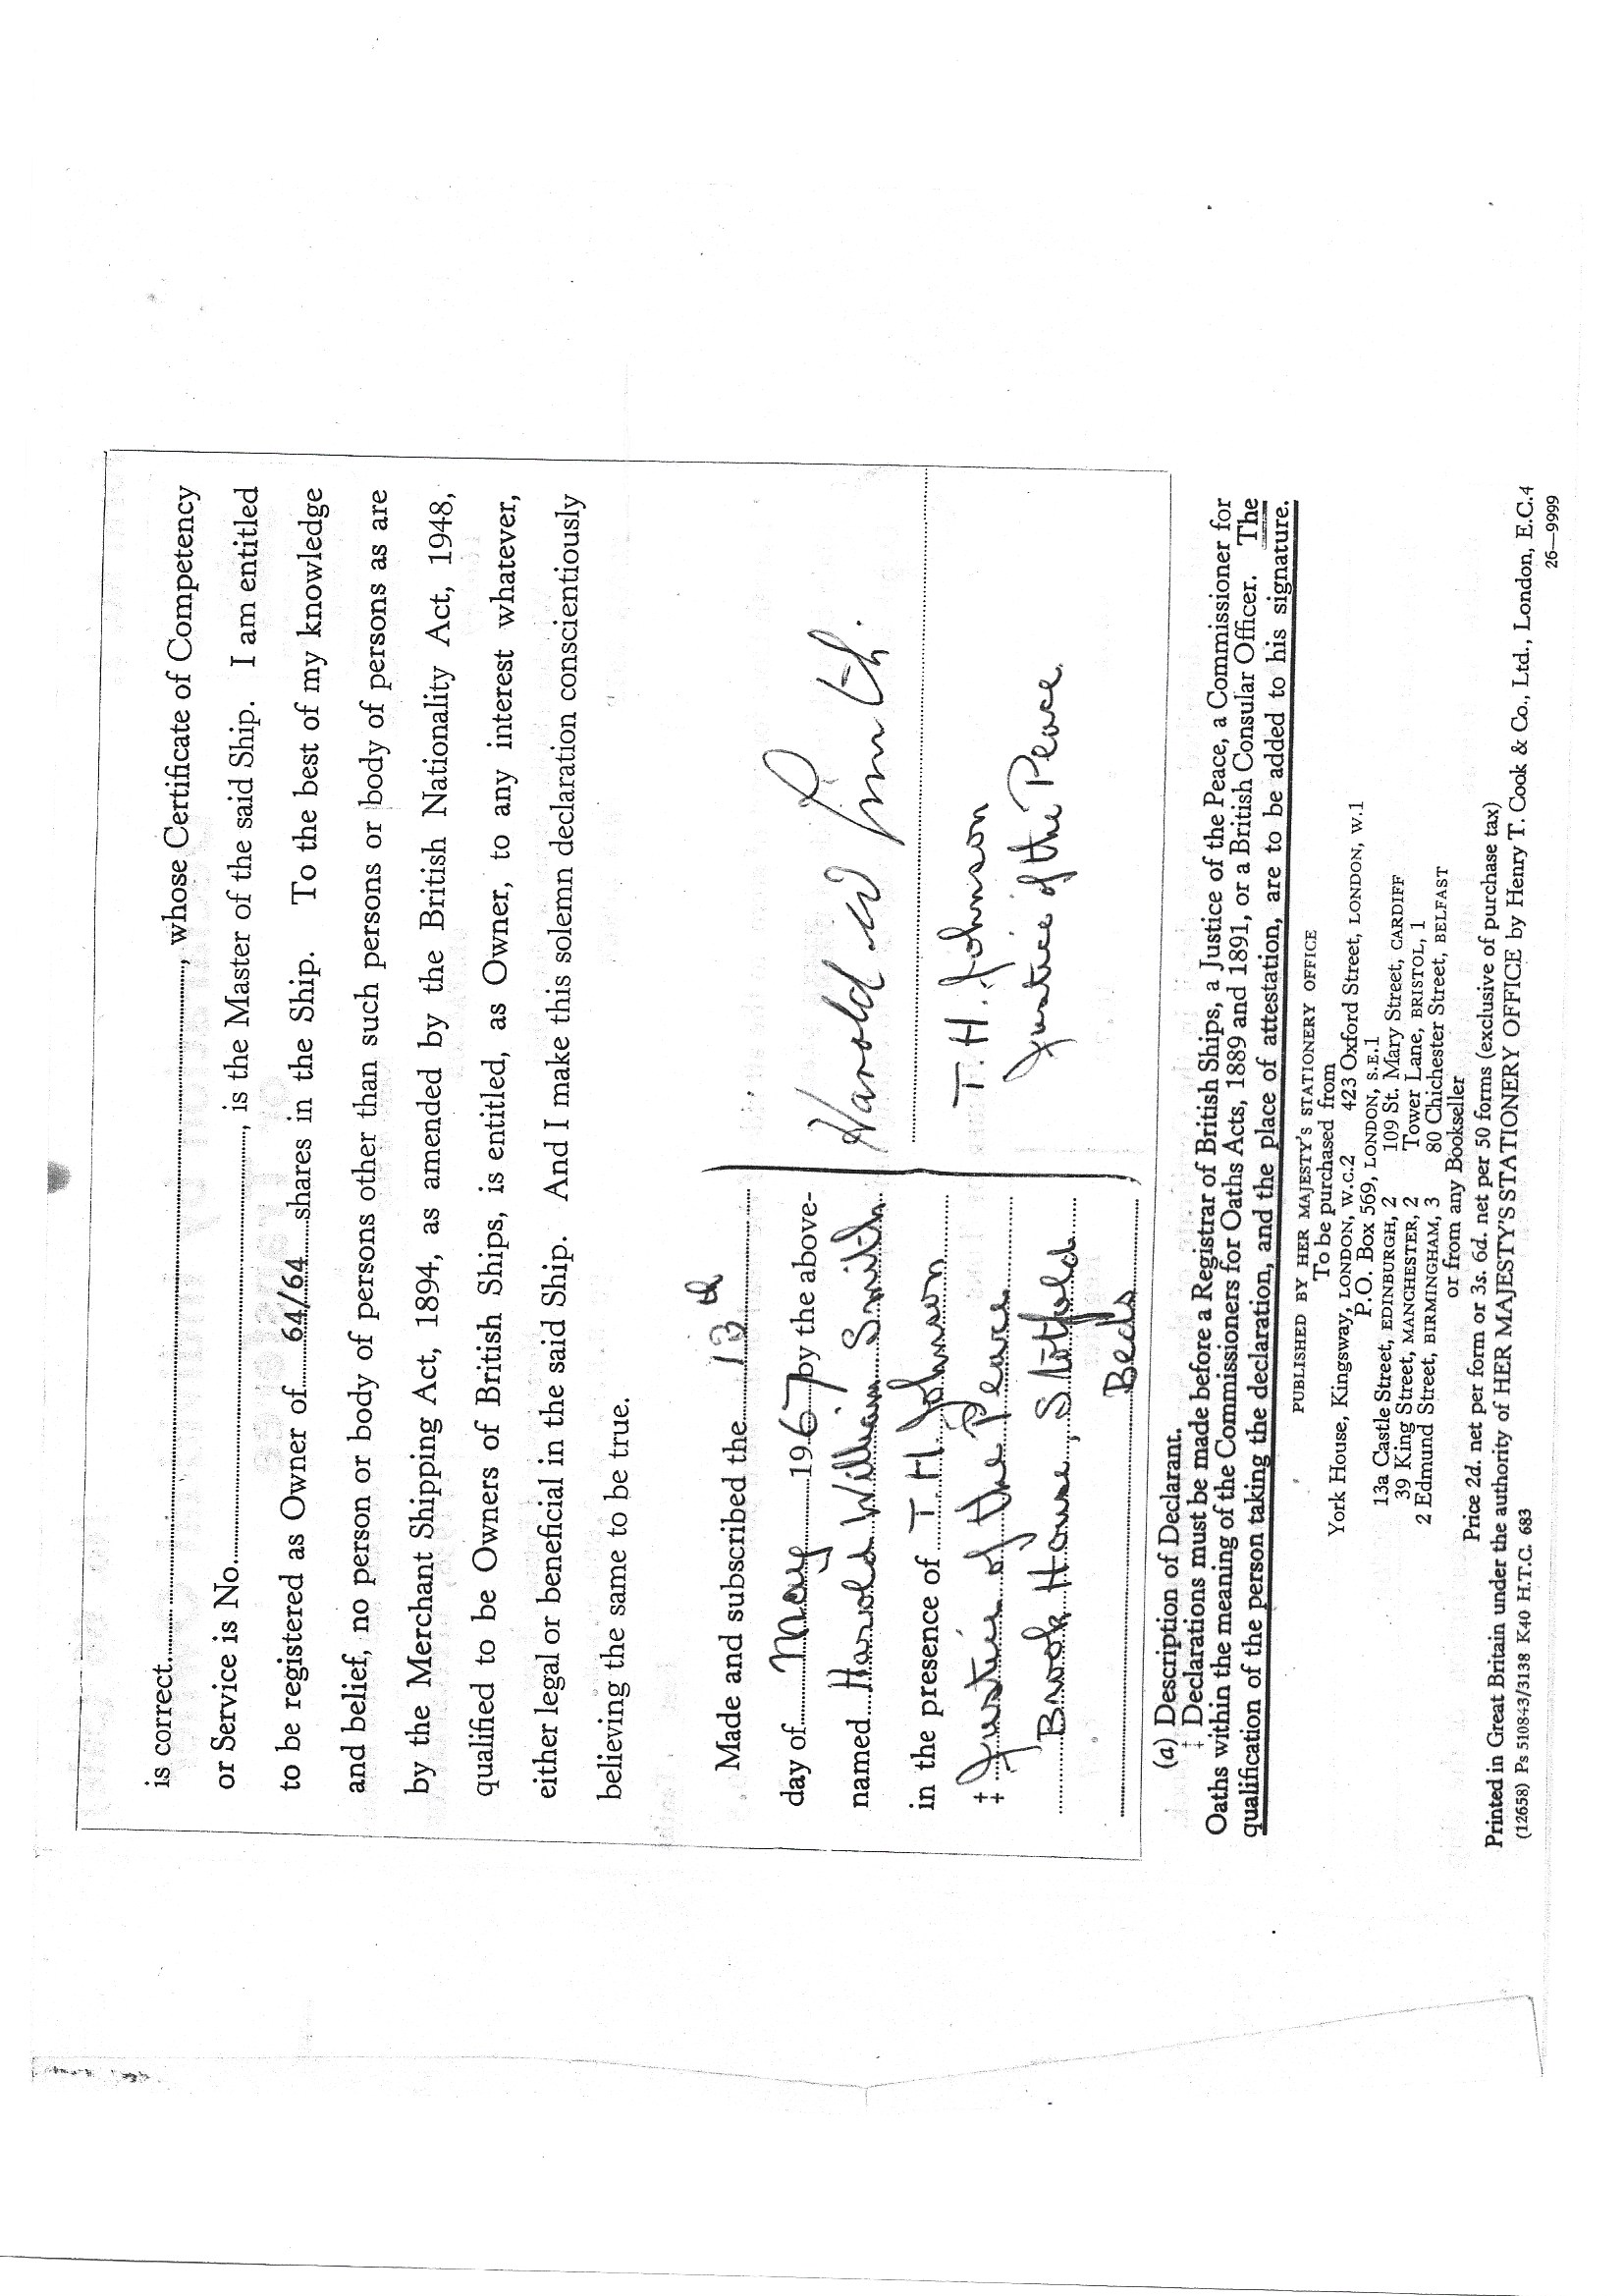 is correct........................................................................................................, whose Certificate of Competency
or Service is No..................................................................................., is the Master of the said Ship. I am entitled
to be registered as Owner of......64/64......shares in the Ship. To the best of my knowledge
and belief, no person or body of persons other than such persons or body of persons as are
by the Merchant Shipping Act, 1894, as amended by the British Nationality Act, 1948,
qualified to be Owners of British Ships, is entitled, as Owner, to any interest whatever,
either legal or beneficial in the said Ship. And I make this solemn declaration conscientiously
believing the same to be true.
Made and subscribed the......13th......
day of......May......1967 by the above-
named...Harold William Smith
in the presence of...T. H. Johnson
‡ Justice of the Peace
Brook House, Stotfold
Beds
Harold W Smith.
T. H. Johnson
Justice of the Peace.
(a) Description of Declarant.
‡ Declarations must be made before a Registrar of British Ships, a Justice of the Peace, a Commissioner for
Oaths within the meaning of the Commissioners for Oaths Acts, 1889 and 1891, or a British Consular Officer. The
qualification of the person taking the declaration, and the place of attestation, are to be added to his signature.
PUBLISHED BY HER MAJESTY'S STATIONERY OFFICE
To be purchased from
York House, Kingsway, LONDON, W.C.2 423 Oxford Street, LONDON, W.1
P.O. Box 569, LONDON, S.E.1
13a Castle Street, EDINBURGH, 2 109 St. Mary Street, CARDIFF
39 King Street, MANCHESTER, 2 Tower Lane, BRISTOL, 1
2 Edmund Street, BIRMINGHAM, 3 80 Chichester Street, BELFAST
or from any Bookseller
Price 2d. net per form or 3s. 6d. net per 50 forms (exclusive of purchase tax)
Printed in Great Britain under the authority of HER MAJESTY'S STATIONERY OFFICE by Henry T. Cook & Co., Ltd., London, E.C.4
(12658) Ps 510843/3138 K40 H.T.C. 683 26—9999